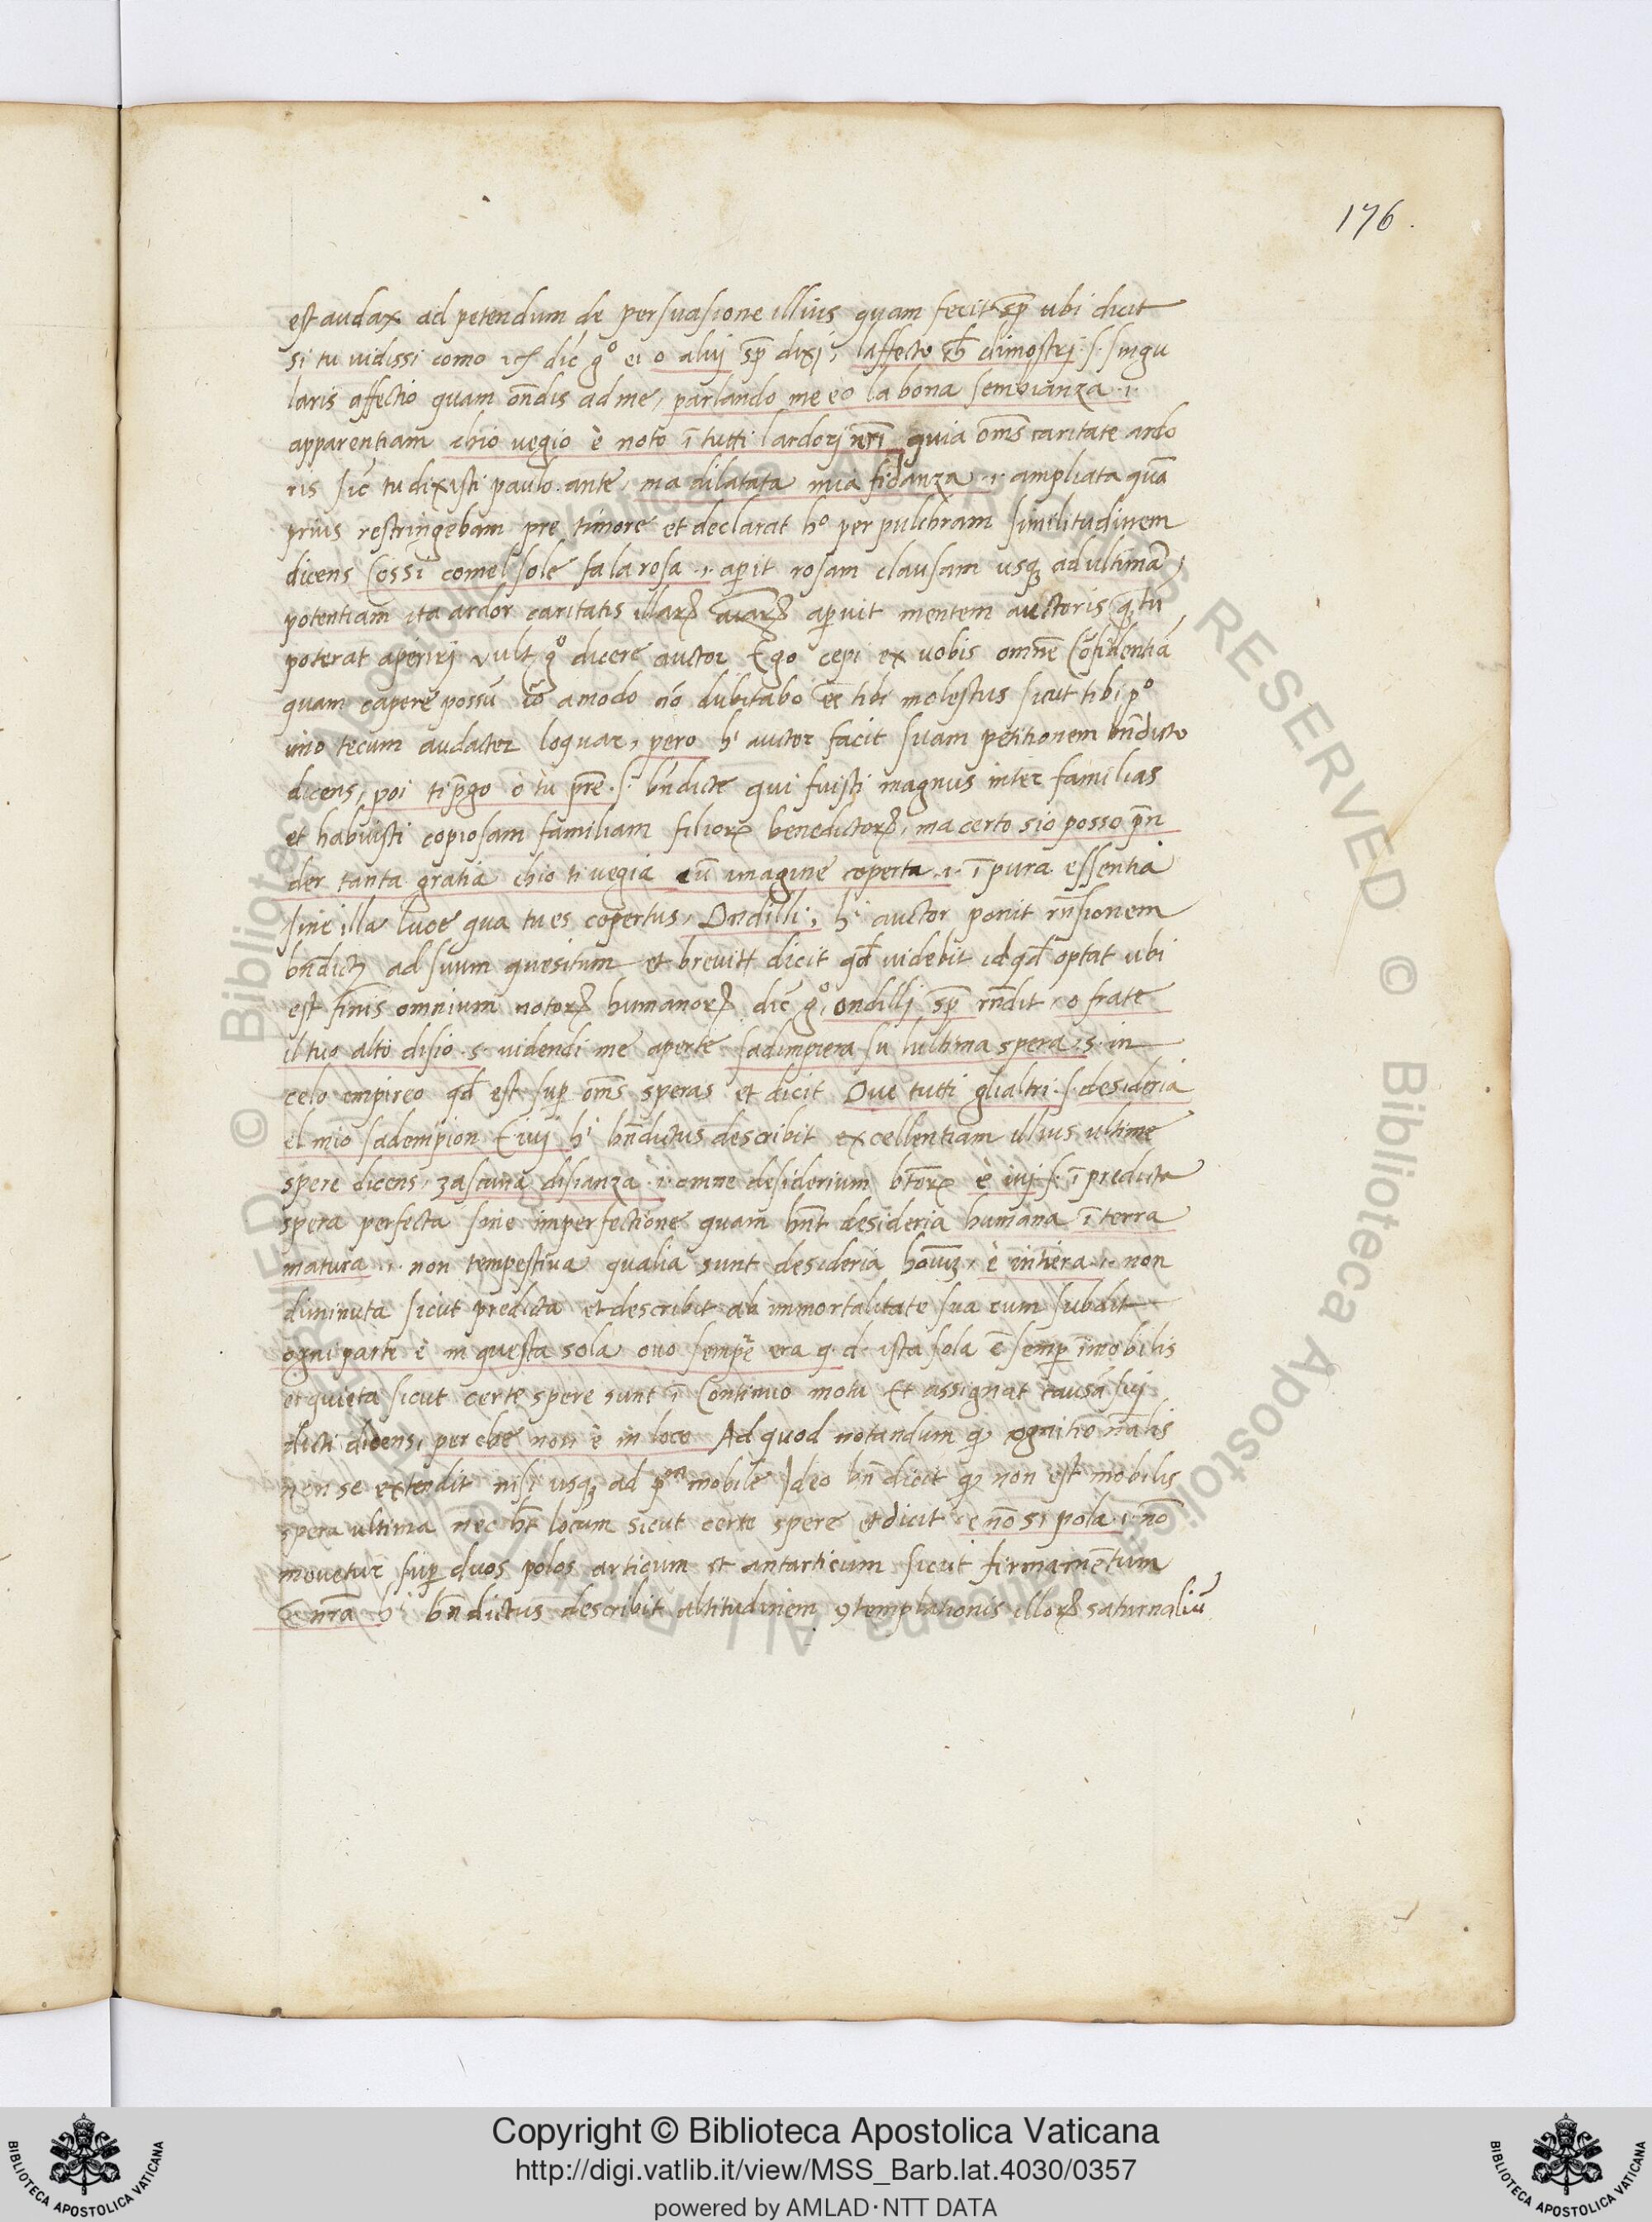 176.
est audax ad petendum de persuasione illius quam fecit sp̄ ubi dicit
si tu uidissi como dic̄ gº ei o aluj sp̄ dixj, laffecto dimostrj .s. singu
laris affectio quam on̄dis ad me, parlando meco la bona sembianza .i.
apparentiam chio vegio è noto ī tutti lardorj nr̄i quia om̄s caritate ardo
ris sic̄ tu dixisti paulo ante, ma dilatata mia fidanza .i. ampliata quā
prius restringebam pre timore et declarat hº per pulchram similitudinem
dicens Cossi comel sole fa la rosa .i. aperit rosam clausam usqꝫ ad ultimam
potentiam̄ ita ardor caritatis illaꝝ aīaꝝ aperuit mentem auctoris qꝫtū
poterat aperirj vult gº dicere auctor Ego cepi ex uobis omnē Cōfidentiā
quam capere possū iō amodo nō dubitabo eē tibi molestus sicut tibi pº
imo tecum audacter loquar, pero hⁱ auctor facit suam petitionem bn̄dicto
dicens, poi ti p̄go o tu pr̄e .s. bn̄dicte qui fuisti magnus inter familias
et habuisti copiosam familiam filioꝝ benedictoꝝ, ma certo sio posso p̄n
der tanta gratia chio ti vegia cū imagine coperta .i. ī pura essentia
sine illa luce qua tu es copertus, Ondilli, hⁱ auctor ponit rn̄sionem
bn̄dictj ad suum quesitum et breuitr̄ dicit qd̄ uidebit id qd̄ optat ubi
est finis omnium uotoꝝ humanoꝝ dic̄ gº, ondillj sp̄ rn̄dit, o frate
il tuo alto disio .s. uidendi me aperte sadimpiera su lultima spera .s. in
celo empireo qd̄ est suꝑ om̄s speras et dicit Oue tutti glialtri .s. desideria
el mio sadempion Eiuj hⁱ bn̄dictus describit excellentiam illius ultime
spere dicens, zascuna disianza .i. omne desiderium bt̄oꝝ è iuj .s. ī predicta
spera perfecta sine imperfectione quam hn̄t desideria humana ī terra
matura .i. non tempestiua qualia sunt desideria hoīuꝫ, è intiera .i. non
diminuta sicut predicta et describit ab immortalitate sua cum subdit
ogni parte è in questa sola ouo sempre era q. d. ista sola ē semꝑ īmobilis
et quieta sicut certe spere sunt ī Continuo motu Et assignat causā suj
dicti dicens, per che non è in loco Ad quod notandum qꝫ cognitio nālis
non se extendit nisi usqꝫ ad pᵐ mobile Ideo bn̄ dicit qꝫ non est mobilis
spera ultima nec ht̄ locum sicut certe spere et dicit, e nō si pola .i. nō
mouetur suꝑ duos polos articum et antarticum sicut firmamētum
E nr̄a hⁱ bn̄dictus describit altitudinem 9templationis illoꝝ saturnaliū
© Biblioteca Apostolica Vaticana ALL RIGHTS RESERVED © Biblioteca Apostolica Vaticana
Copyright © Biblioteca Apostolica Vaticana
http://digi.vatlib.it/view/MSS_Barb.lat.4030/0357
powered by AMLAD·NTT DATA
BIBLIOTECA APOSTOLICA VATICANA
BIBLIOTECA APOSTOLICA VATICANA